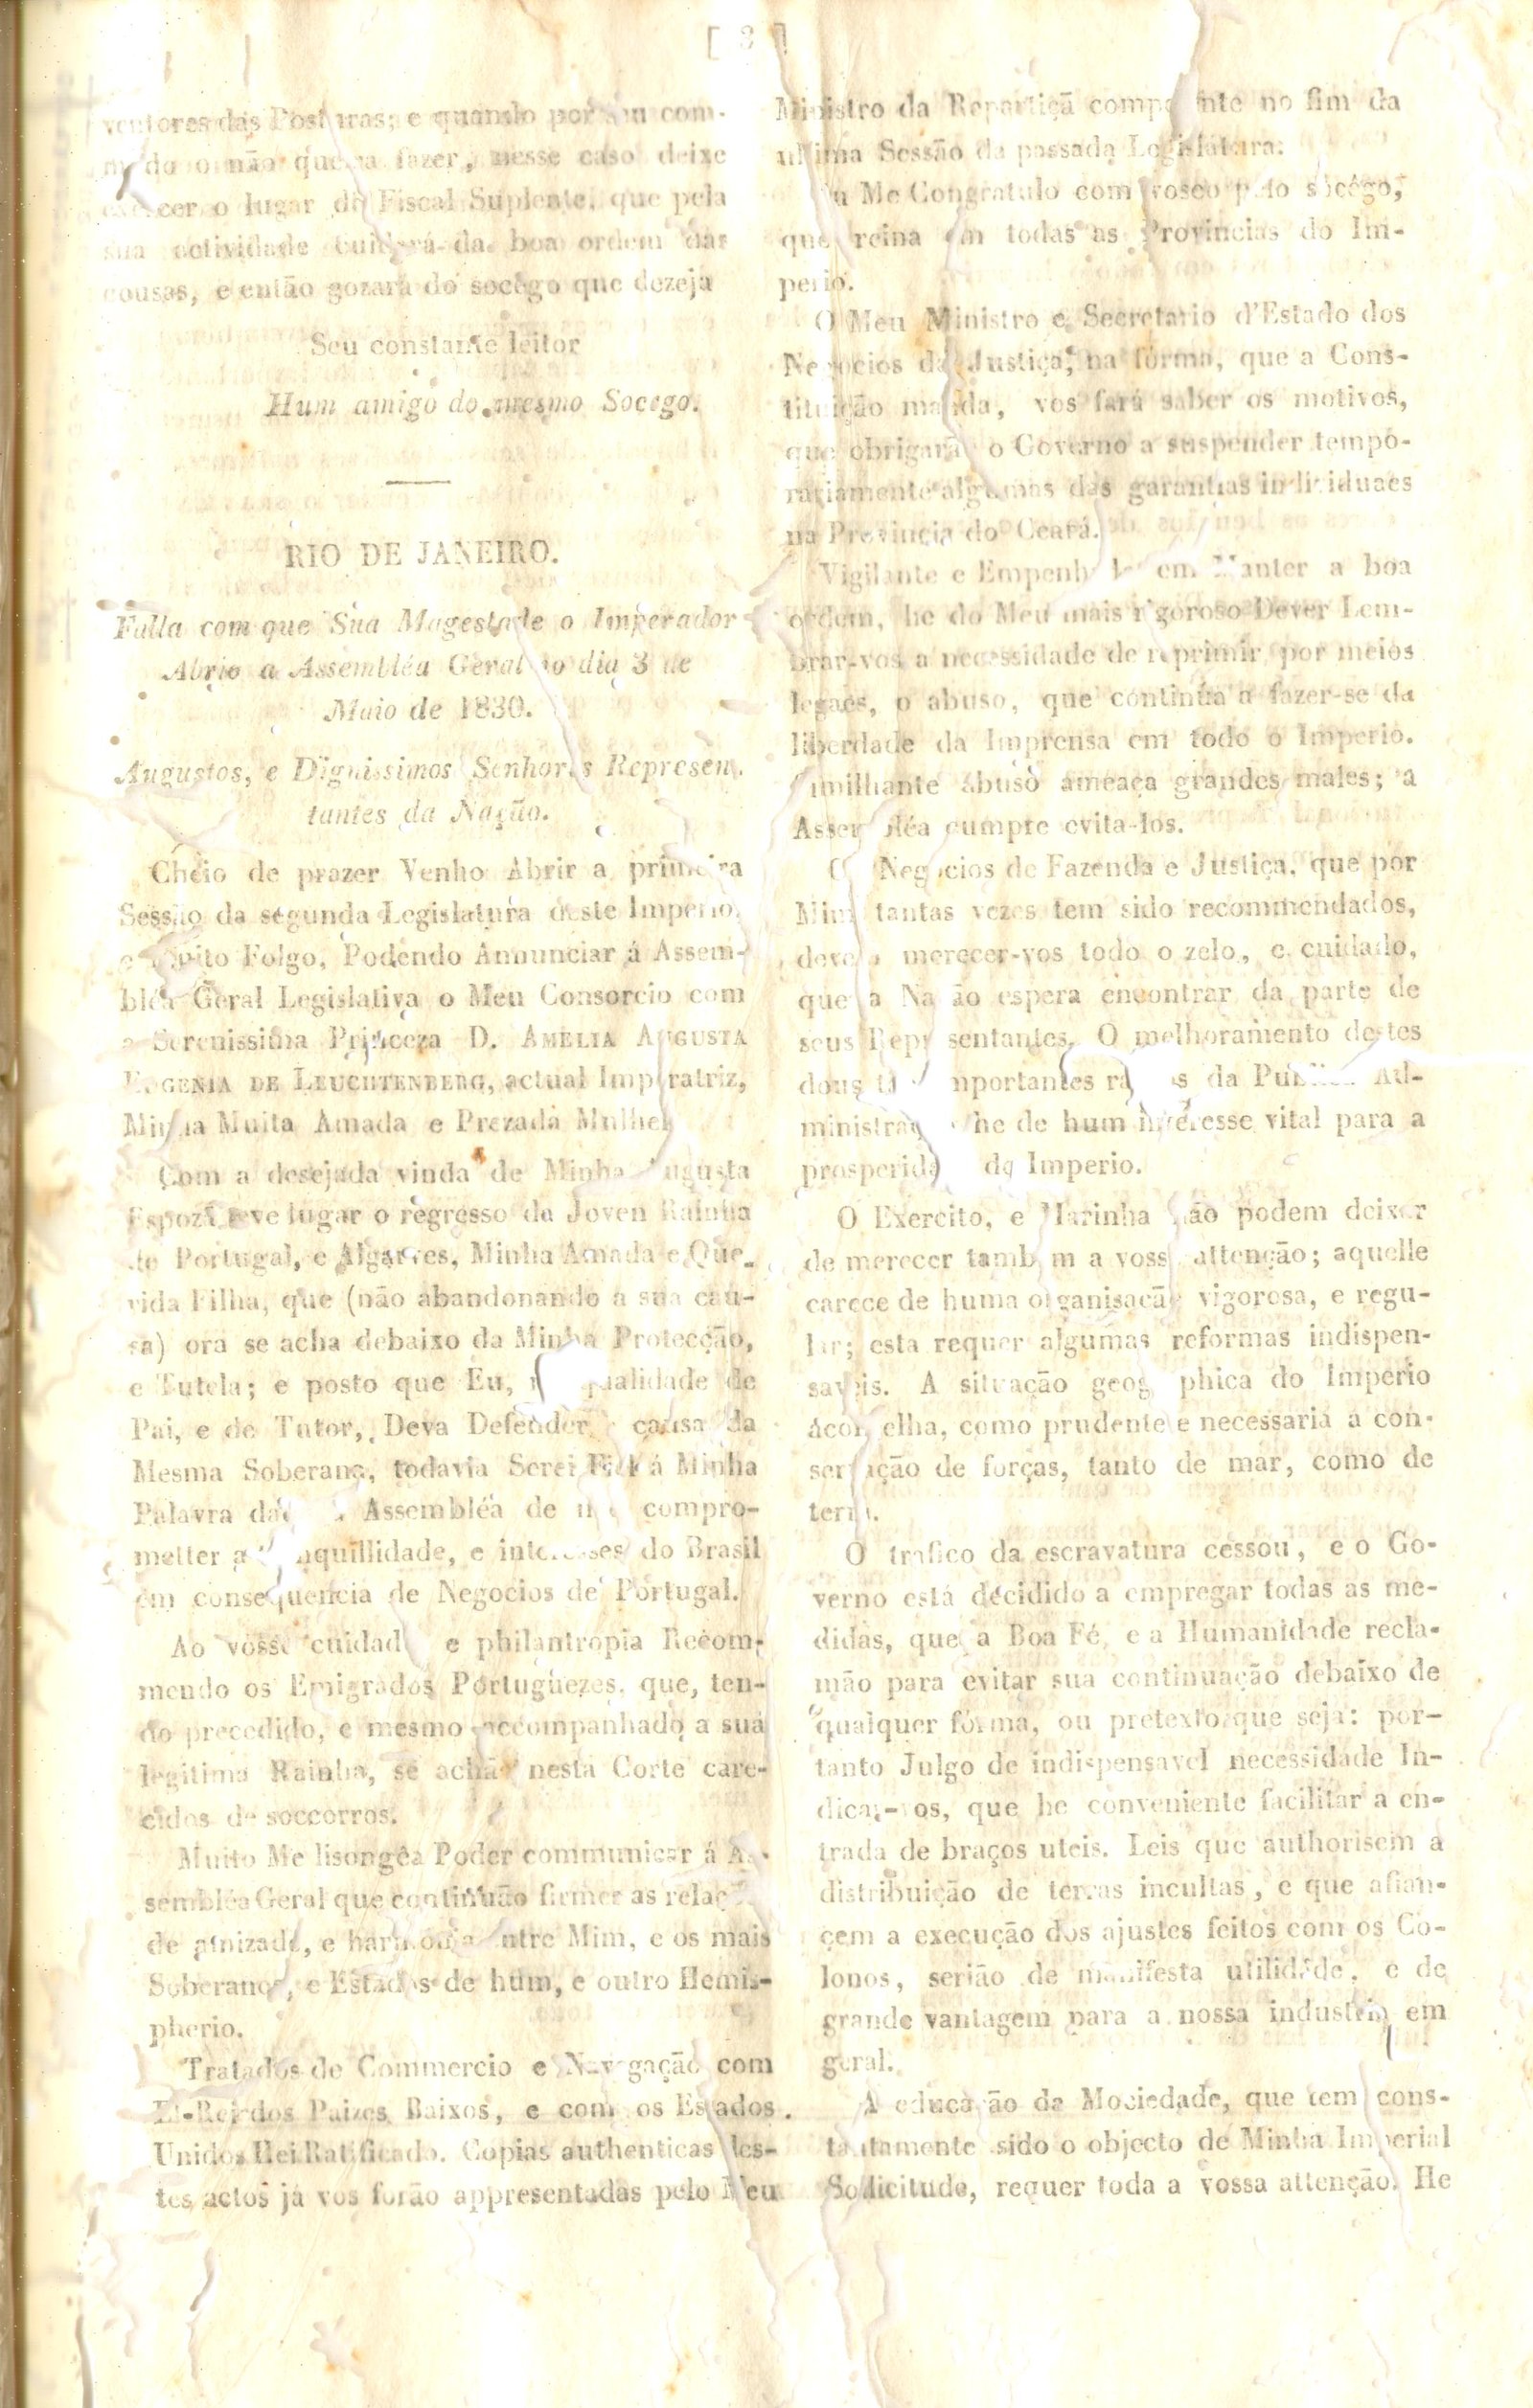 [ 3 ]
ventores das Posturas; e quando por seu com-
modo o não queira fazer, nesse caso deixe
exercer o lugar do Fiscal Suplente, que pela
sua actividade cuidará da boa ordem das
cousas, e então gozará do socego que dezeja
Seu constante leitor
Hum amigo do mesmo Socego.
RIO DE JANEIRO.
Falla com que Sua Magestade o Imperador
Abrio a Assembléa Geral no dia 3 de
Maio de 1830.
Augustos, e Dignissimos Senhores Represen-
tantes da Nação.
Cheio de prazer Venho Abrir a primeira
Sessão da segunda Legislatura deste Imperio,
e Muito Folgo, Podendo Annunciar á Assem-
bléa Geral Legislativa o Meu Consorcio com
a Serenissima Princeza D. AMELIA AUGUSTA
EUGENIA DE LEUCHTENBERG, actual Imperatriz,
Minha Muita Amada e Prezada Mulher
Com a desejada vinda de Minha Augusta
Espoza teve lugar o regresso da Joven Rainha
de Portugal, e Algarves, Minha Amada e Que-
rida Filha, que (não abandonando a sua cau-
sa) ora se acha debaixo da Minha Protecção,
e Tutela; e posto que Eu, na qualidade de
Pai, e de Tutor, Deva Defender a causa da
Mesma Soberana, todavia Serei Fiel á Minha
Palavra dada á Assembléa de não compro-
metter a tranquillidade, e interesses do Brasil
em consequencia de Negocios de Portugal.
Ao vosso cuidado e philantropia Recom-
mendo os Emigrados Portuguezes, que, ten-
do precedido, e mesmo accompanhado a sua
legitima Rainha, se achão nesta Corte care-
cidos de soccorros.
Muito Me lisongêa Poder communicar á As-
sembléa Geral que continuão firmes as relações
de amizade, e harmonia entre Mim, e os mais
Soberanos, e Estados de hum, e outro Hemis-
pherio.
Tratados de Commercio e Navegação com
El-Rei dos Paizes Baixos, e com os Estados
Unidos Hei Ratificado. Copias authenticas des-
tes actos já vos forão appresentadas pelo Meu
Ministro da Repartiçã competente no fim da
ultima Sessão da passada Legislatura.
Eu Me Congratulo com vosco pelo socégo,
que reina em todas as Provincias do Im-
perio.
O Meu Ministro e Secretario d'Estado dos
Negocios da Justiça, na fórma, que a Cons-
tituição manda, vos fará saber os motivos,
que obrigarão o Governo a suspender tempo-
rariamente algumas das garantias individuaes
na Provincia do Ceará.
Vigilante e Empenhado em Manter a boa
ordem, he do Meu mais rigoroso Dever Lem-
brar-vos a necessidade de reprimir, por meios
legaes, o abuso, que continúa a fazer-se da
liberdade da Imprensa em todo o Imperio.
Similhante abuso ameaça grandes males; a
Assembléa cumpre evita-los.
Os Negocios de Fazenda e Justiça, que por
Mim tantas vezes tem sido recommendados,
devem merecer-vos todo o zelo, e cuidado,
que a Nação espera encontrar da parte de
seus Representantes. O melhoramento destes
dous tão importantes ramos da Publica Ad-
ministração he de hum interesse vital para a
prosperidade do Imperio.
O Exercito, e Marinha não podem deixar
de merecer tambem a vossa attenção; aquelle
carece de huma organisação vigorosa, e regu-
lar; esta requer algumas reformas indispen-
saveis. A situação geographica do Imperio
aconselha, como prudente e necessaria a con-
servação de forças, tanto de mar, como de
terra.
O trafico da escravatura cessou, e o Go-
verno está décidido a empregar todas as me-
didas, que a Boa Fé, e a Humanidade recla-
mão para evitar sua continuação debaixo de
qualquer fórma, ou pretexto que seja: por-
tanto Julgo de indispensavel necessidade In-
dicar-vos, que he conveniente facilitar a en-
trada de braços uteis. Leis que authorisem a
distribuição de terras incultas, e que afian-
çem a execução dos ajustes feitos com os Co-
lonos, serião de manifesta utilidade, e de
grande vantagem para a nossa industria em
geral.
A educação da Mociedade, que tem cons-
tantamente sido o objecto de Minha Imperial
Sollicitude, requer toda a vossa attenção. He